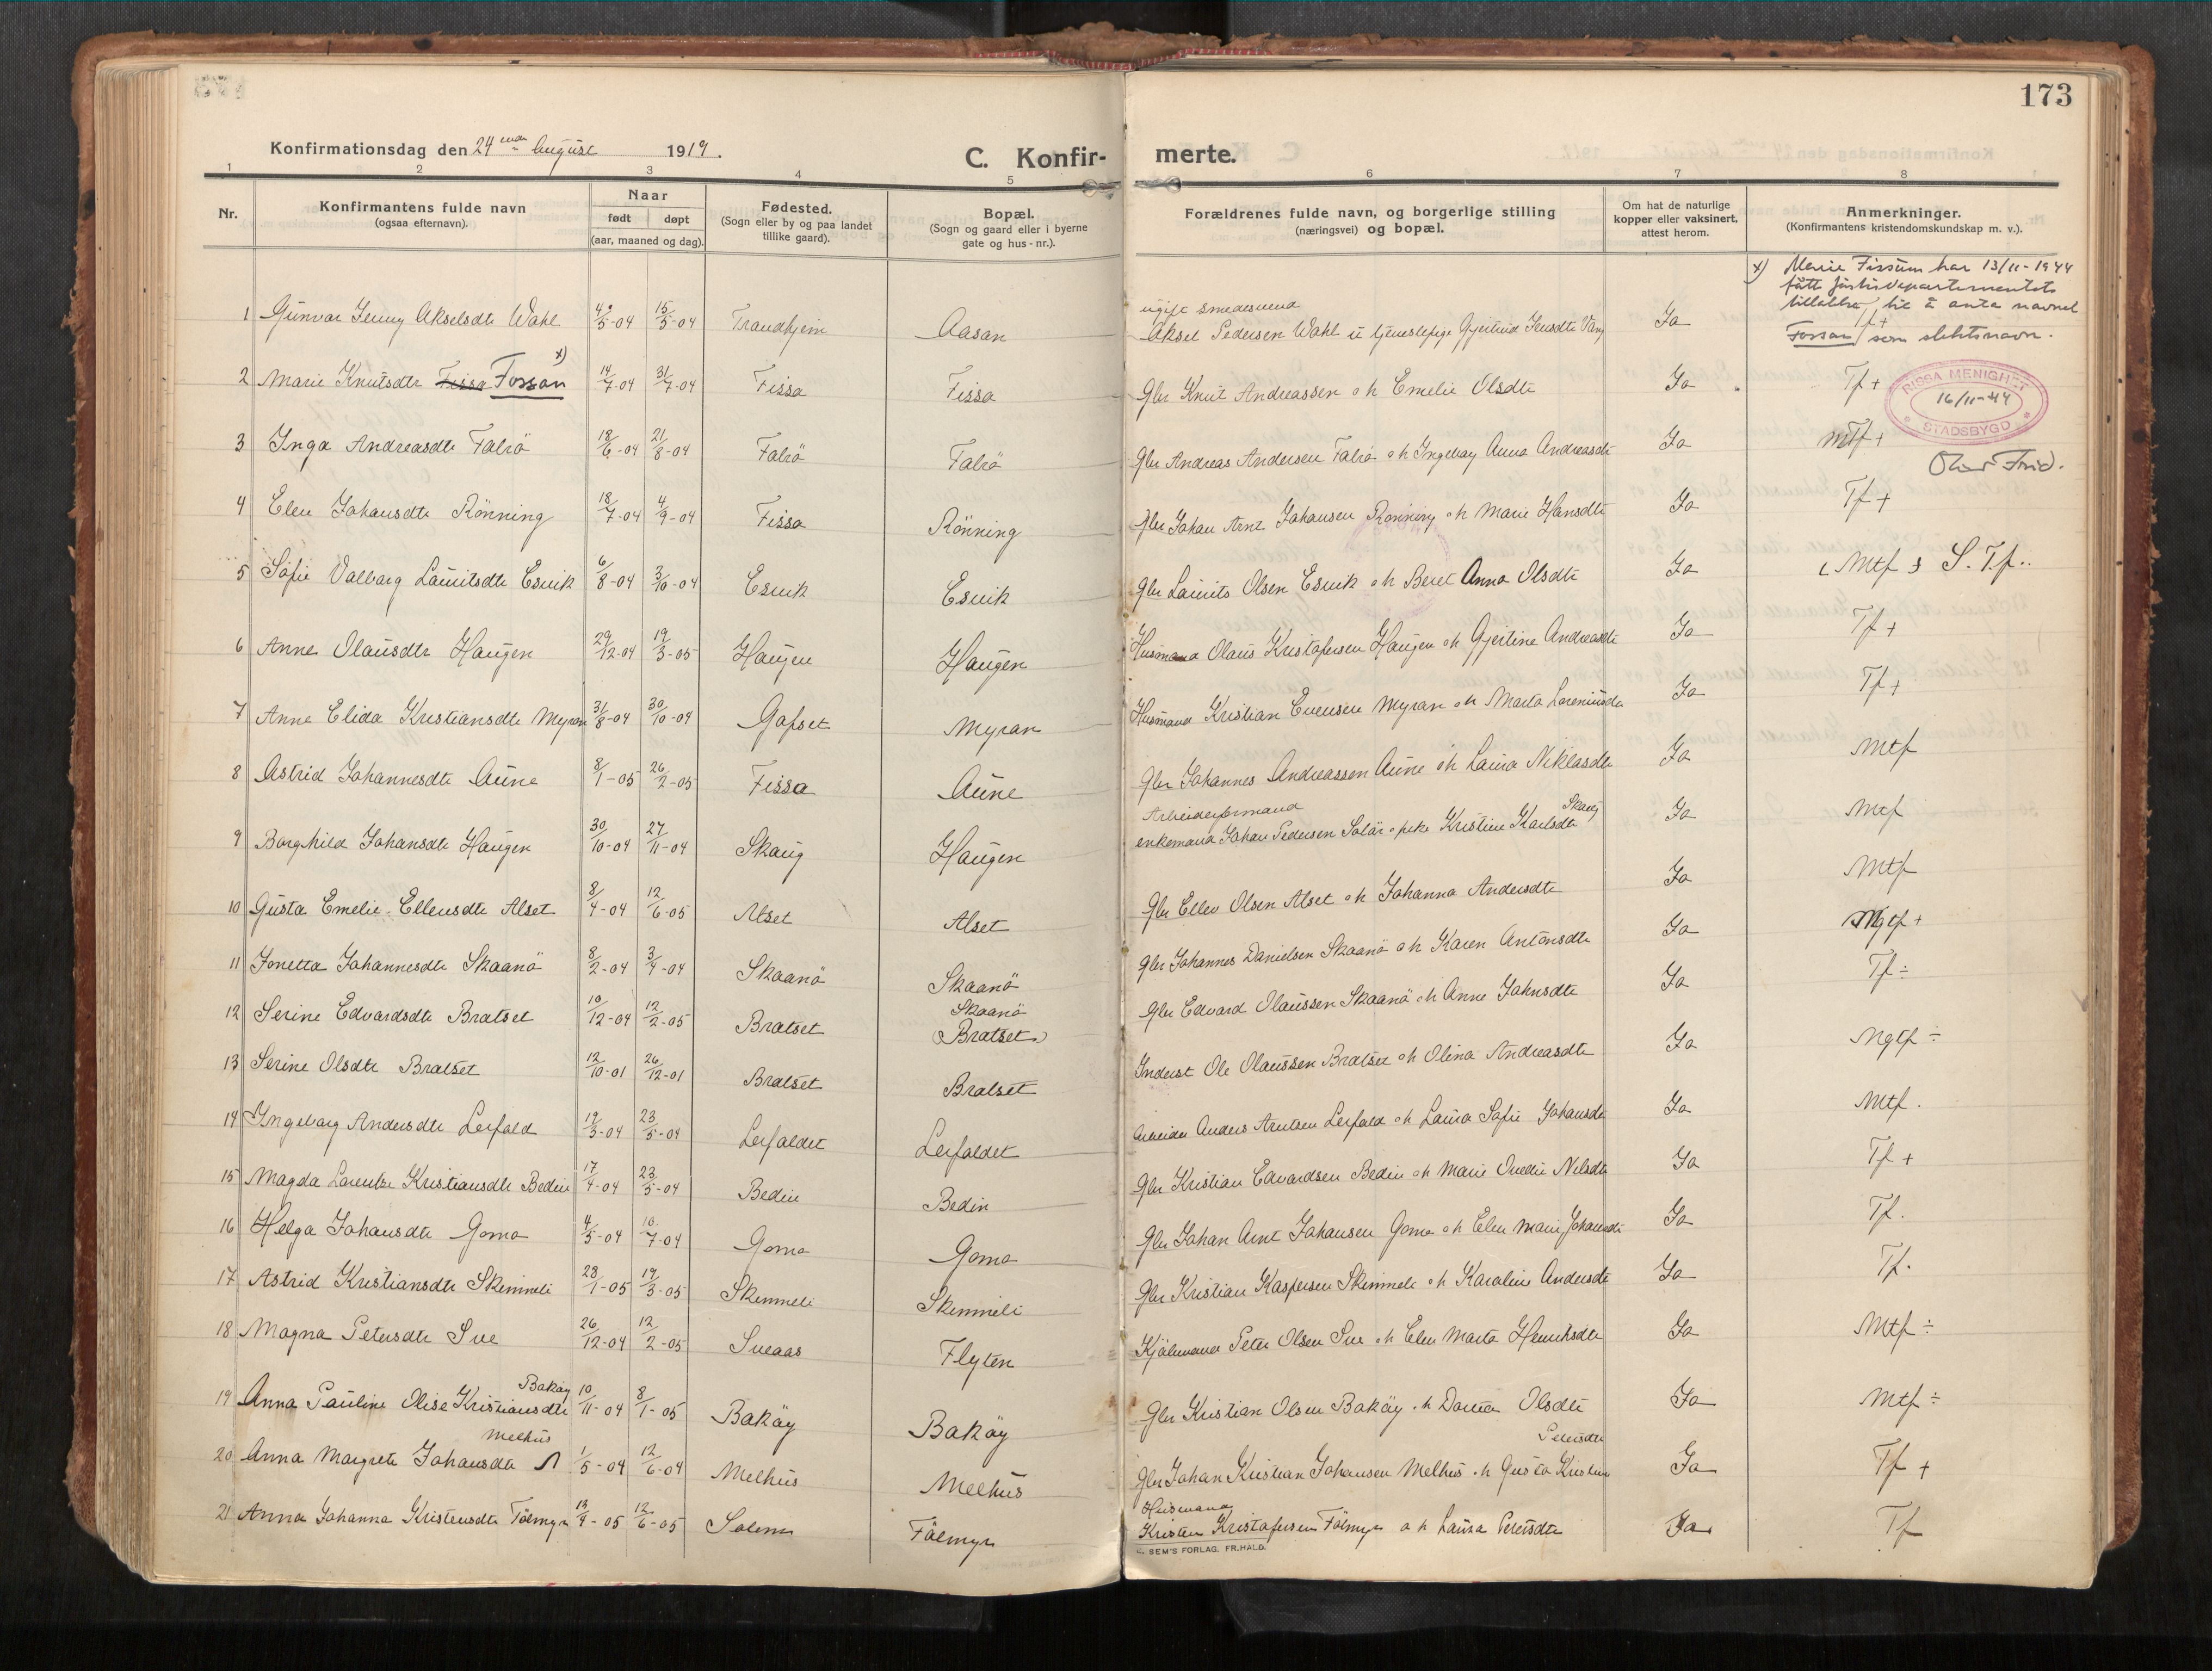 173
Konfirmationsdag den 24 August 1919.
C. Konfir- merte.
1 2 3 4 5 6 7 8
Nr.
Konfirmantens fulde navn
(ogsaa efternavn).
Naar
født døpt
(aar, maaned og dag).
Fødested.
(Sogn eller by og paa landet
tillike gaard).
Bopæl.
(Sogn og gaard eller i byerne
gate og hus-nr.).
Forældrenes fulde navn, og borgerlige stilling
(næringsvei) og bopæl.
Om hat de naturlige
kopper eller vaksinert,
attest herom.
Anmerkninger.
(Konfirmantens kristendomskundskap m. v.).
x) Marie Fissum har 13/11-1944
fått Justisdepartementets
tillatelse til å anta navnet
Fossan som slektsnavn.
ugift smedesvend
1 Gunvor Jenny Akselsdtr Wahl 4/5-04 15/5-04 Trondhjem Aasan Aksel Pedersen Wahl u tjenestepige Gjertrud Jensdtr Vang Ja Tf+
2 Marie Knutsdtr Fissa Fossan x) 14/7-04 31/7-04 Fissa Fissa Gbr Knut Andreassen o h Emelie Olsdtr Ja Tf+
RISSA MENIGHET
16/11-44
STADSBYGD
3 Inga Andreasdtr Falrö 18/6-04 21/8-04 Falrö Falrö Gbr Andreas Andersen Falrö o h Ingebørg Anna Andreasdtr Ja Mtf+
4 Elen Johansdtr Rönning 18/7-04 4/9-04 Fissa Rönning Gbr Johan Arnt Johansen Rönning o h Marie Hansdtr Ja Tf+
5 Sofie Valborg Lauritsdtr Esvik 6/8-04 3/10-04 Esvik Esvik Gbr Laurits Olsen Esvik o h Beret Anna Olsdtr Ja (Mtf) S. Tf..
6 Anne Olausdtr Haugen 29/12-04 19/3-05 Haugen Haugen Husmand Olaus Kristofersen Haugen o h Gjertine Andreasdtr Ja Tf+
7 Anne Elida Kristiansdtr Myran 31/8-04 30/10-04 Gafset Myran Husmand Kristian Evensen Myran o h Marta Loreniusdtr Ja Tf+
8 Astrid Johannesdtr Aune 8/1-05 26/2-05 Fissa Aune Gbr Johannes Andreassen Aune o h Laura Niklasdtr Ja Mtf
Arbeiderformand
9 Borghild Johansdtr Haugen 30/10-04 27/11-04 Skaug Haugen enkemand Johan Pedersen Solär o pike Kristine Karlsdtr Skaug Ja Mtf
10 Gusta Emelie Ellevsdtr Alset 8/4-04 12/6-05 Alset Alset Gbr Ellev Olsen Alset o h Johanna Andersdtr Ja Mtf
11 Jonetta Johannesdtr Skaanö 8/2-04 3/4-04 Skaanö Skaanö Gbr Johannes Danielsen Skaanö o h Karen Antonsdtr Ja Mgtf+
12 Serine Edvardsdtr Bratset 10/12-04 12/2-05 Bratset Skaanö (Bratset) Gbr Edvard Olaussen Skaanö o h Anne Johnsdtr Ja Tf÷
13 Serine Olsdtr Bratset 12/10-01 26/12-01 Bratset Bratset Inderst Ole Olaussen Bratset o h Olina Andreasdtr Ja Ngtf÷
14 Ingeborg Andersdtr Leifald 19/3-04 23/5-04 Leifaldet Leifaldet Arbeider Anders Arntsen Leifald o h Laura Sofie Johansdtr Ja Mtf.
15 Magda Lorentse Kristiansdtr Bedin 17/4-04 23/5-04 Bedin Bedin Gbr Kristian Edvardsen Bedin o h Marie Nilsdtr Ja Tf+
16 Helga Johansdtr Gomo 4/5-04 10/7-04 Gomo Gomo Gbr Johan Arnt Johansen Gomo o h Elen Marie Johansdtr Ja Tf.
17 Astrid Kristiansdtr Skimmeli 28/1-05 19/3-05 Skimmeli Skimmeli Gbr Kristian Kaspersen Skimmeli o h Karoline Andersdtr Ja Tf.
18 Magna Petersdtr Sve 26/12-04 12/2-05 Sveaas Flyten Peter Olsen Sve o h Elen Marta Henriksdtr Ja Mtf÷
19 Anna Pauline Olise Kristiansdtr Bakøy 10/11-04 8/1-05 Bakøy Bakøy Gbr Kristian Olsen Bakøy o h Dortea Olsdtr Ja Mtf÷
20 Anna Margrete Johansdtr Melhus 1/5-04 12/6-04 Melhus Melhus Gbr Johan Kristian Johansen Melhus o h Gusta Kristine Petersdtr Ja Tf+
Husmand
21 Anna Johanna Kristensdtr Fölmyr 13/4-05 12/6-05 Solem Fölmyr Kristen Kristofersen Fölmyr o h Laura Petersdtr Ja Tf
SEM'S FORLAG. FR.HALD.